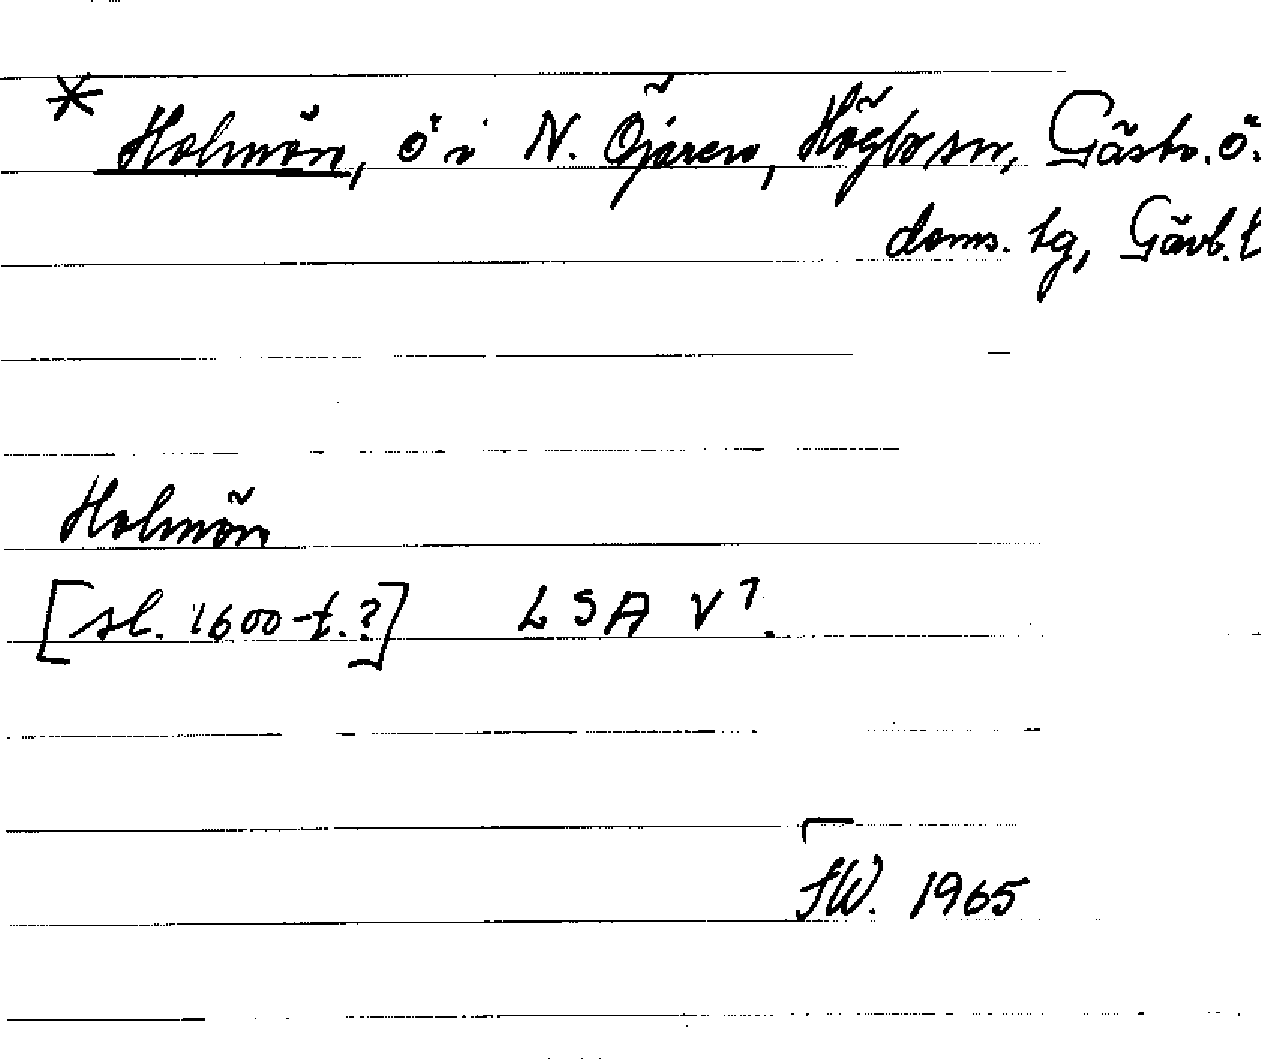 * Holmön, ö i N. Öjaren, Högbo sn, Gästr. ö.
doms. tg, Gävl. l
Holmön
[sl. 1600-t.?] LSA V⁷.
SW. 1965